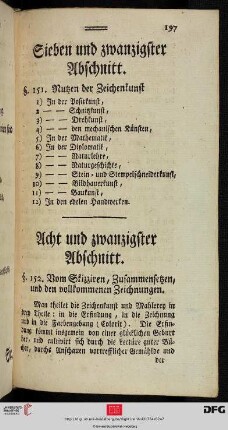 197
Sieben und zwanzigster
Abschnitt.
§. 151. Nutzen der Zeichenkunst
1) In der Possirkunst,
2) — — Schnitzkunst,
3) — — Drehkunst,
4) — — den mechanischen Künsten,
5) In der Mathematik,
6) In der Diplomatik,
7) — — Naturlehre,
8) — — Naturgeschichte,
9) — — Stein- und Stempelschneiderkunst,
10) — — Bildhauerkunst,
11) — — Baukunst,
12) In den edelen Handwerken.
Acht und zwanzigster
Abschnitt.
§. 152. Vom Skizziren, Zusammensetzen,
und den vollkommenen Zeichnungen.
Man theilet die Zeichenkunst und Mahlerey in
drey Theile: in die Erfindung, in die Zeichnung
und in die Farbengebung (Colorit). Die Erfin-
dung kömmt insgemein von einer glücklichen Geburt
her, und cultivirt sich durch die Lecture guter Bü-
cher, durchs Anschauen vortrefflicher Gemählde und
der
DFG